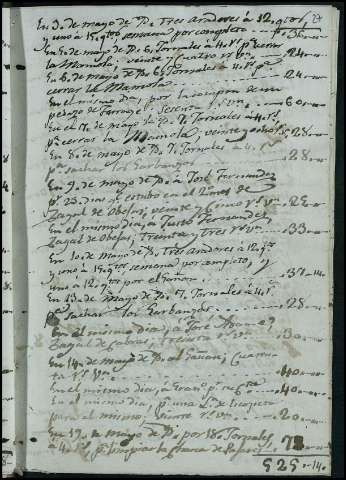 En 3 de mayo de Dº. Tres aradores á 12 qtos
y uno á 15 qtos semana por completo 36
En 5 de mayo de Dº. 6 Jornales á 4 rs. pª cerrar
la Mamola, veinte y cuatro rs vn 24
En 6 de mayo de Dº. 6 Jornales á 4 rs. pª
cerrar la Mamola 24
En el mismo dia, por la compra de un
60
En el 7 de mayo de Dº. 7 Jornales á 4 rs.
pª cerrar la Mamola, veinte y ocho rs 28
En 8 de mayo de Dº. 7 Jornales á 4 rs
pª sachar los Garbanzos 28
En 9 de mayo de Dº. á José Fernandez
pr. 25 dias qe. estubo en el
Zagal de Obejas, veinte y cinco rs vn 25
En el mismo dia, á Justo Fernandez,
Zagal de Obejas, treinta y tres rs vn 33
En 10 de mayo de Dº. Tres Aradores á 12 qtos
y uno á 15 qtos semana por completo, y
uno á 12 qtos por el Gañan 37-14
En 13 de Mayo de Dº. 7 Jornales á 4 rs.
pª sachar los Garbanzos 28
En el mismo dia, á José
Zagal de Cabras, treinta rs vn 30
En 14 de mayo de Dº. al Gañan, Cuaren
ta rs. vn 40
En el mismo dia, á 40
En el mismo dia, pr. una
para el mismo veinte rs vn 20
En 17 de mayo de Dº. por 18 Jornales,
á 4 rs. pª limpiar la 72
525-14